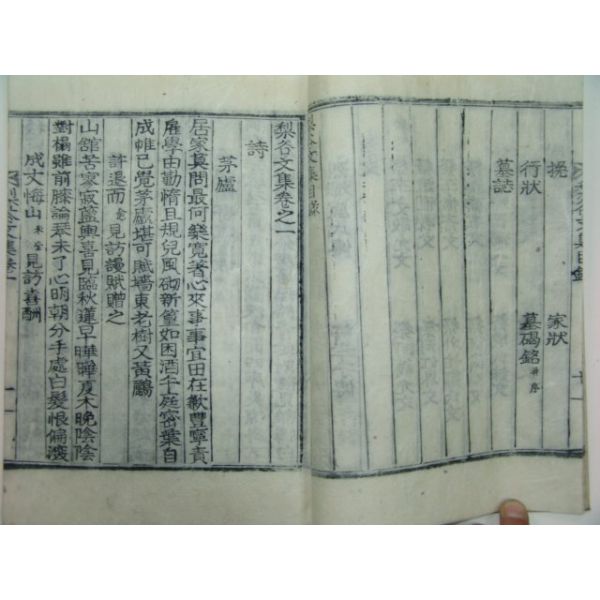 輓 家狀
行狀 墓碣銘 并序
墓誌
梨谷文集目錄
梨谷文集卷之一
詩
茅廬
居家莫問最何樂寬著心來事事宜田在歉豐寧責
雇學由勤惰且規兒風砌新篁如困酒午庭密葉自
成帷已覺茅廬堪可賦墻東老樹又黃鸝
許退而見訪謾賦贈之
山館苦寥寂藍輿喜見臨秋蓮早曄曄夏木晚陰陰
對榻雖前膝論琴未了心明朝分手處白髮恨偏深
成丈梅山見訪喜酬